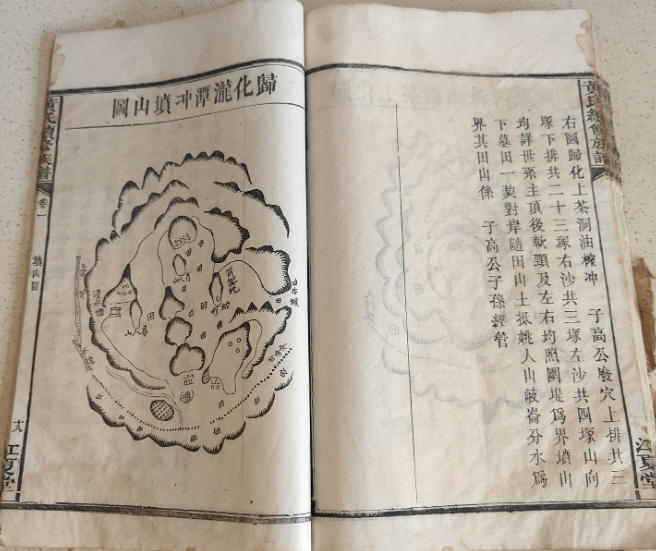 黃氏續修族譜
右圖歸化上茶洞油榨冲　子高公發穴上排共三
塚下排共二十三塚右沙共三塚左沙共四塚山向
均詳世系主頂後軟頸及左右均照圖堤爲界墳山
下墓田一契對岸隨田山土抵姚人山岐崙分水爲
界其田山係　子高公子孫經管
江夏堂
歸化瀧潭冲墳山圖
黃氏續修族譜
卷一
墳山圖
江夏堂